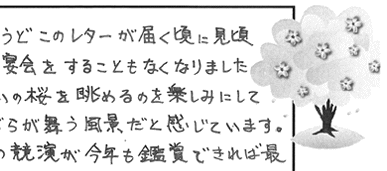 うどこのレターが届く頃に見頃
宴会をすることもなくなりました
いの桜を眺めるのを楽しみにして
らが舞う風景だと感じています。
の競演が今年も鑑賞できれば最